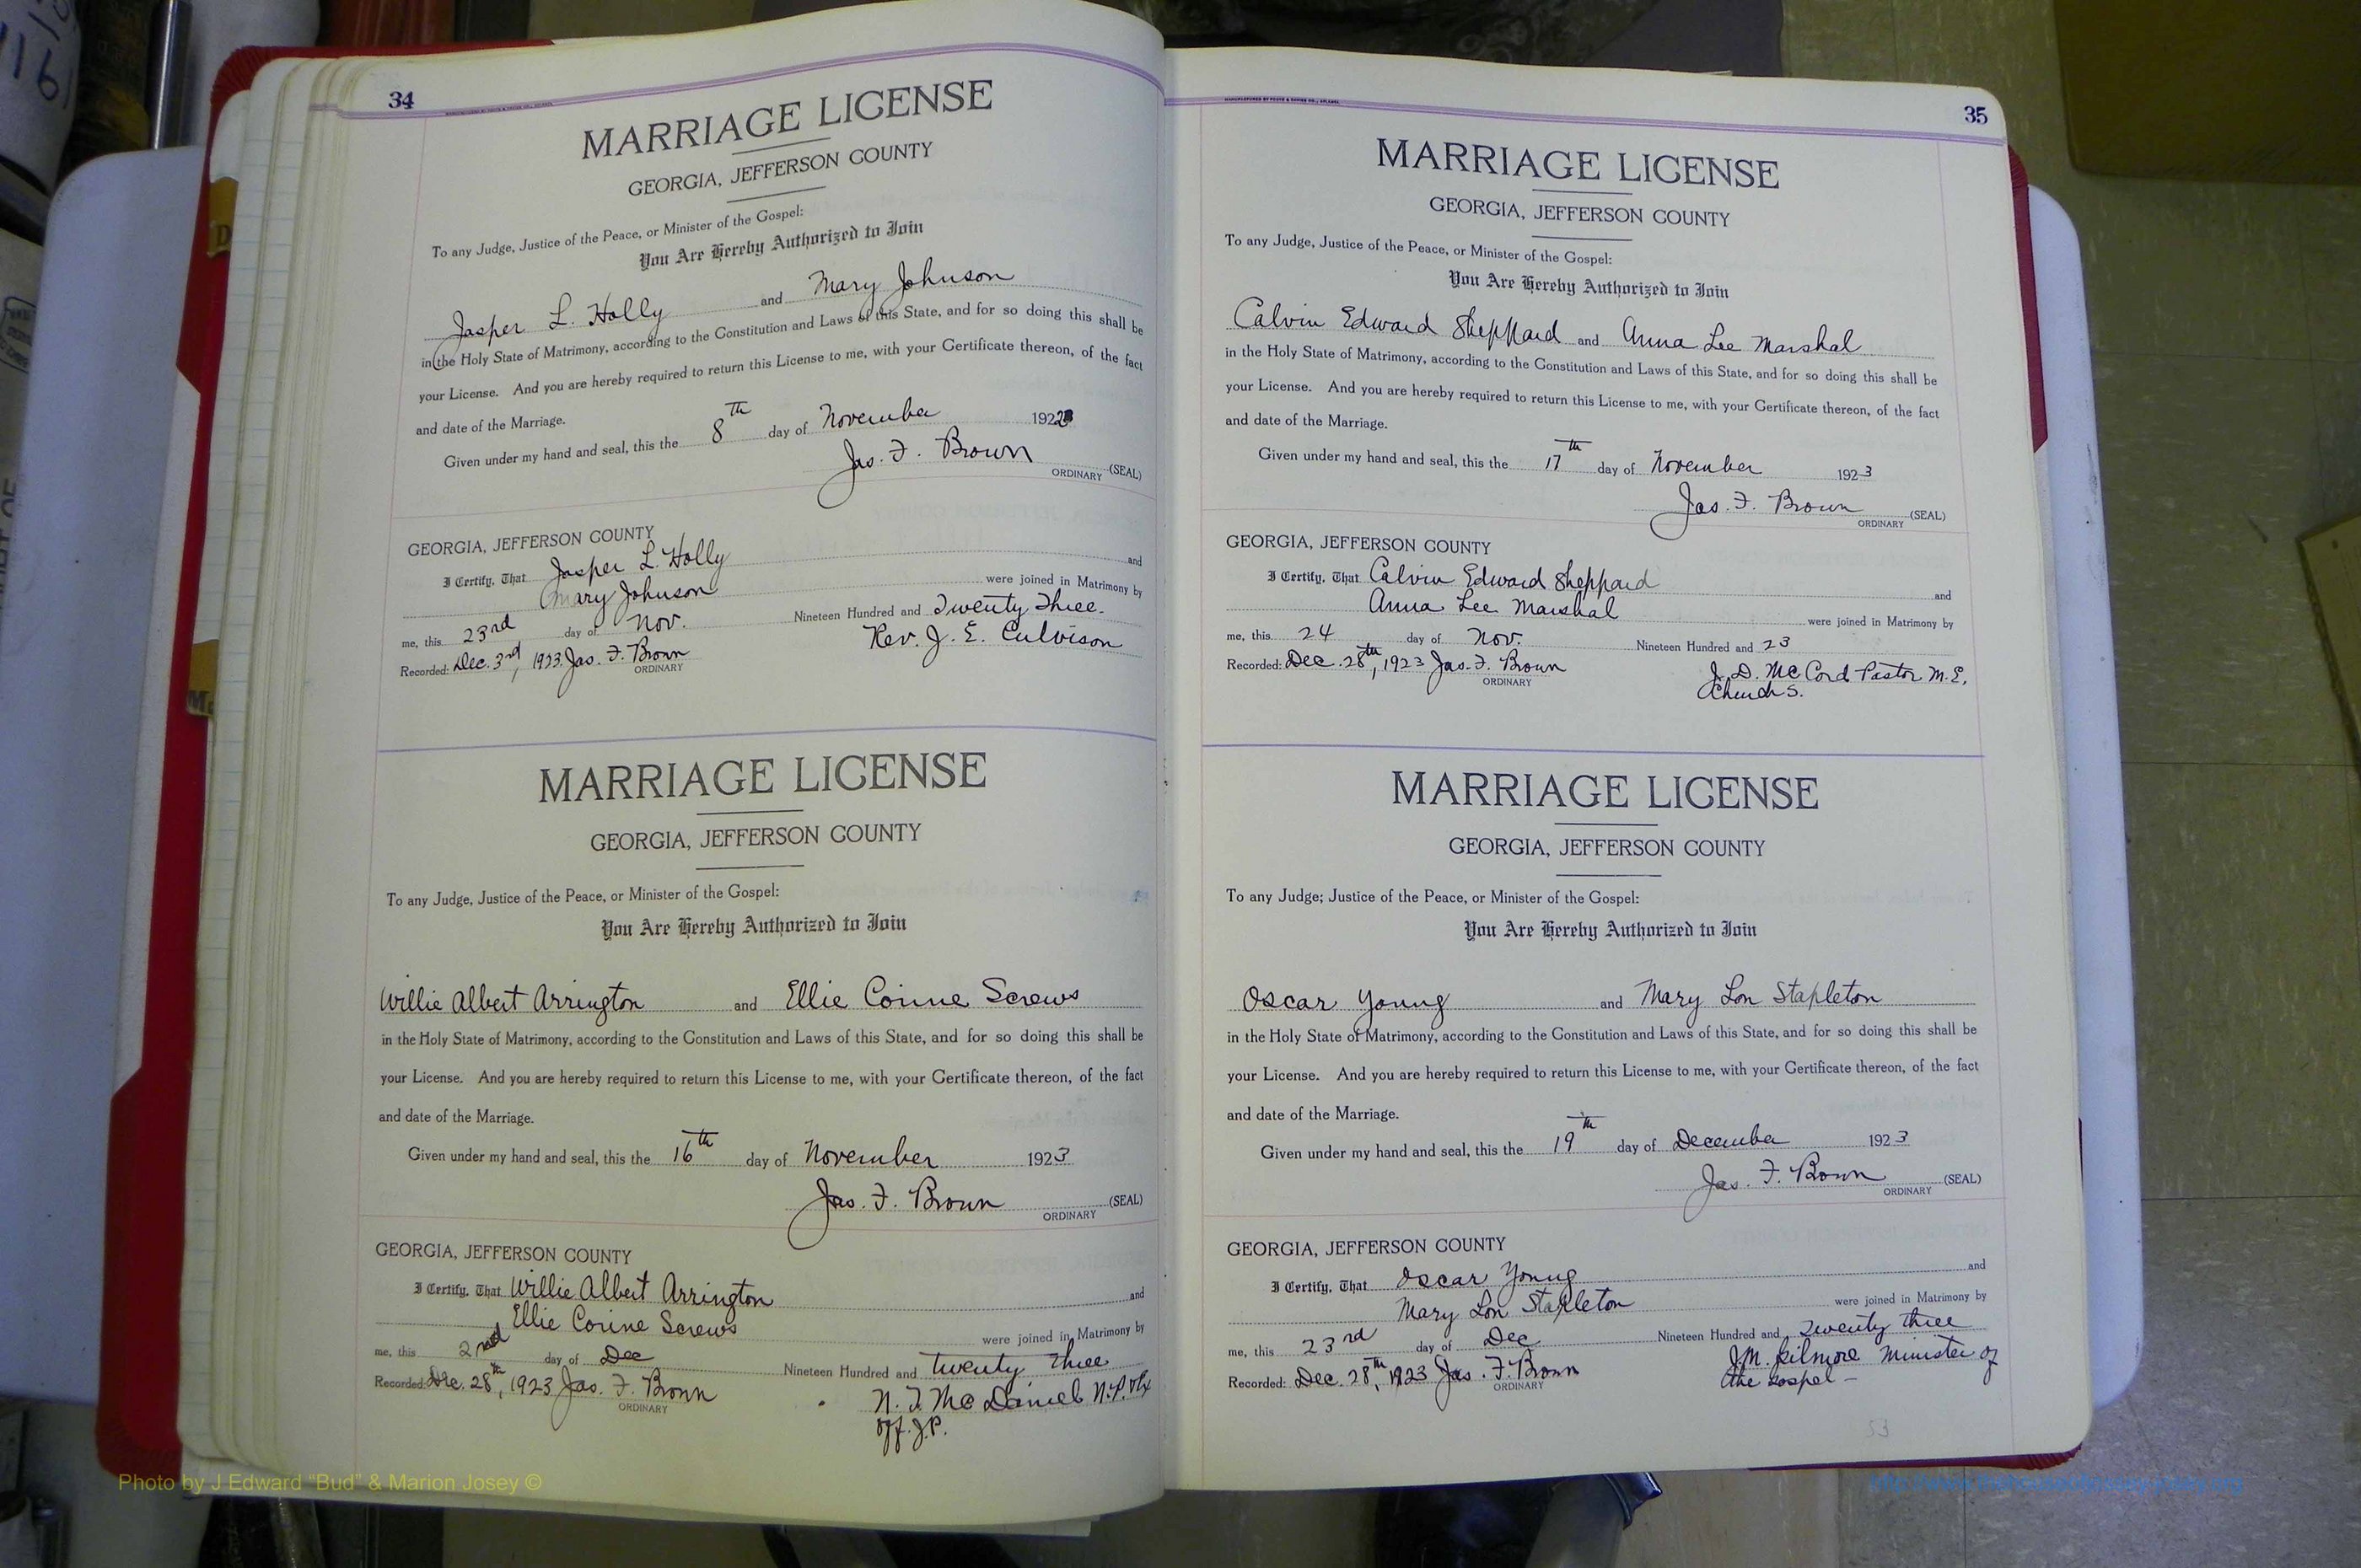 34
MARRIAGE LICENSE
GEORGIA, JEFFERSON COUNTY
To any Judge, Justice of the Peace, or Minister of the Gospel:
You Are Hereby Authorized to Join
Jasper L. Holly and Mary Johnson
in the Holy State of Matrimony, according to the Constitution and Laws of this State, and for so doing this shall be
your License. And you are hereby required to return this License to me, with your Certificate thereon, of the fact
and date of the Marriage.
Given under my hand and seal, this the 8th day of November 1923
Jas. F. Brown (SEAL)
ORDINARY
GEORGIA, JEFFERSON COUNTY
I Certify, That Jasper L. Holly and
Mary Johnson were joined in Matrimony by
me, this 23rd day of Nov. Nineteen Hundred and Twenty Three.
Recorded: Dec. 3rd, 1923 Jas. F. Brown Rev. J. E. Culvison
ORDINARY
MARRIAGE LICENSE
GEORGIA, JEFFERSON COUNTY
To any Judge, Justice of the Peace, or Minister of the Gospel:
You Are Hereby Authorized to Join
Willie Albert Arrington and Ellie Corine Screws
in the Holy State of Matrimony, according to the Constitution and Laws of this State, and for so doing this shall be
your License. And you are hereby required to return this License to me, with your Certificate thereon, of the fact
and date of the Marriage.
Given under my hand and seal, this the 16th day of November 1923
Jas. F. Brown (SEAL)
ORDINARY
GEORGIA, JEFFERSON COUNTY
I Certify, That Willie Albert Arrington and
Ellie Corine Screws were joined in Matrimony by
me, this 2nd day of Dec Nineteen Hundred and twenty three
Recorded: Dec. 28th, 1923 Jas. F. Brown N. J. McDaniel N.P. & Ex
ORDINARY
off. J.P.
35
MARRIAGE LICENSE
GEORGIA, JEFFERSON COUNTY
To any Judge, Justice of the Peace, or Minister of the Gospel:
You Are Hereby Authorized to Join
Calvin Edward Sheppard and Anna Lee Marshal
in the Holy State of Matrimony, according to the Constitution and Laws of this State, and for so doing this shall be
your License. And you are hereby required to return this License to me, with your Certificate thereon, of the fact
and date of the Marriage.
Given under my hand and seal, this the 17th day of November 1923
Jas. F. Brown (SEAL)
ORDINARY
GEORGIA, JEFFERSON COUNTY
I Certify, That Calvin Edward Sheppard and
Anna Lee Marshal were joined in Matrimony by
me, this 24 day of Nov. Nineteen Hundred and 23
Recorded: Dec. 28th, 1923 Jas. F. Brown J. D. McCord Pastor M.E.
ORDINARY
Church S.
MARRIAGE LICENSE
GEORGIA, JEFFERSON COUNTY
To any Judge; Justice of the Peace, or Minister of the Gospel:
You Are Hereby Authorized to Join
Oscar Young and Mary Lon Stapleton
in the Holy State of Matrimony, according to the Constitution and Laws of this State, and for so doing this shall be
your License. And you are hereby required to return this License to me, with your Certificate thereon, of the fact
and date of the Marriage.
Given under my hand and seal, this the 19th day of December 1923
Jas. F. Brown (SEAL)
ORDINARY
GEORGIA, JEFFERSON COUNTY
I Certify, That Oscar Young and
Mary Lon Stapleton were joined in Matrimony by
me, this 23rd day of Dec Nineteen Hundred and Twenty three
Recorded: Dec. 28th, 1923 Jas. F. Brown J.M. Kilmore Minister of
ORDINARY
the Gospel -
53
Photo by J Edward "Bud" & Marion Josey ©